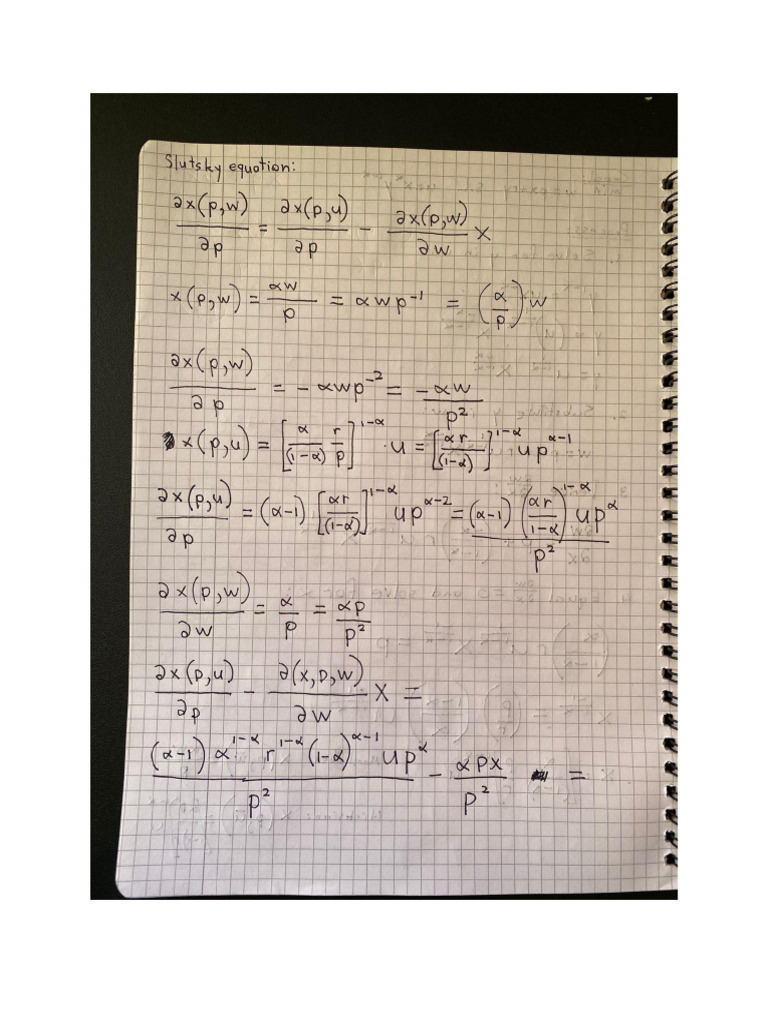 Slutsky equation:
∂x(p,w)/∂p = ∂x(p,u)/∂p - ∂x(p,w)/∂w x
x(p,w) = αw/p = αwp^-1 = (α/p)w
∂x(p,w)/∂p = -αwp^-2 = -αw/p^2
x(p,u) = [α/(1-α) r/p]^1-α · u = [αr/(1-α)]^1-α up^α-1
∂x(p,u)/∂p = (α-1) [αr/(1-α)]^1-α up^α-2 = (α-1) (αr/1-α)^1-α up^α/p^2
∂x(p,w)/∂w = α/p = αp/p^2
∂x(p,u)/∂p - ∂(x,p,w)/∂w x =
(α-1) α^1-α r^1-α (1-α)^α-1 up^α/p^2 - αpx/p^2 =